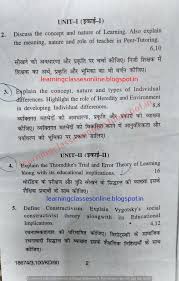 UNIT–I (इकाई–I)
2. Discuss the concept and nature of Learning. Also explain
the meaning, nature and role of teacher in Peer-Tutoring.
6,10
सीखने की अवधारणा और प्रकृति पर चर्चा कीजिए। निजी शिक्षण में
शिक्षक का अर्थ, प्रकृति और भूमिका का भी वर्णन कीजिए।
learningclassesonline.blogspot.in
3. Explain the concept, nature and types of Individual
differences. Highlight the role of Heredity and Environment
in developing Individual differences. 8,8
व्यक्तिगत की अवधारणा, प्रकृति एवं प्रकारों का वर्णन कीजिए।
व्यक्तिगत को विकसित करने में आनुवंशिकता और
पर्यावरण की भूमिका पर प्रकाश डालिए।
UNIT–II (इकाई–II)
4. Explain the Thorndike's Trial and Error Theory of Learning
along with its educational implications. 16
learningclassesonline.blogspot.in
के और त्रुटि सीखने के सिद्धान्त की व्याख्या इसके
शैक्षिक के साथ कीजिए।
5. Define Constructivism. Explain Vygotsky's social
constructivist theory alongwith its Educational
implications. 4,12
को परिभाषित कीजिए। के सामाजिक
सिद्धान्त की इसके शैक्षिक के साथ व्याख्या
कीजिए।
18674/3,100/KD/60 2